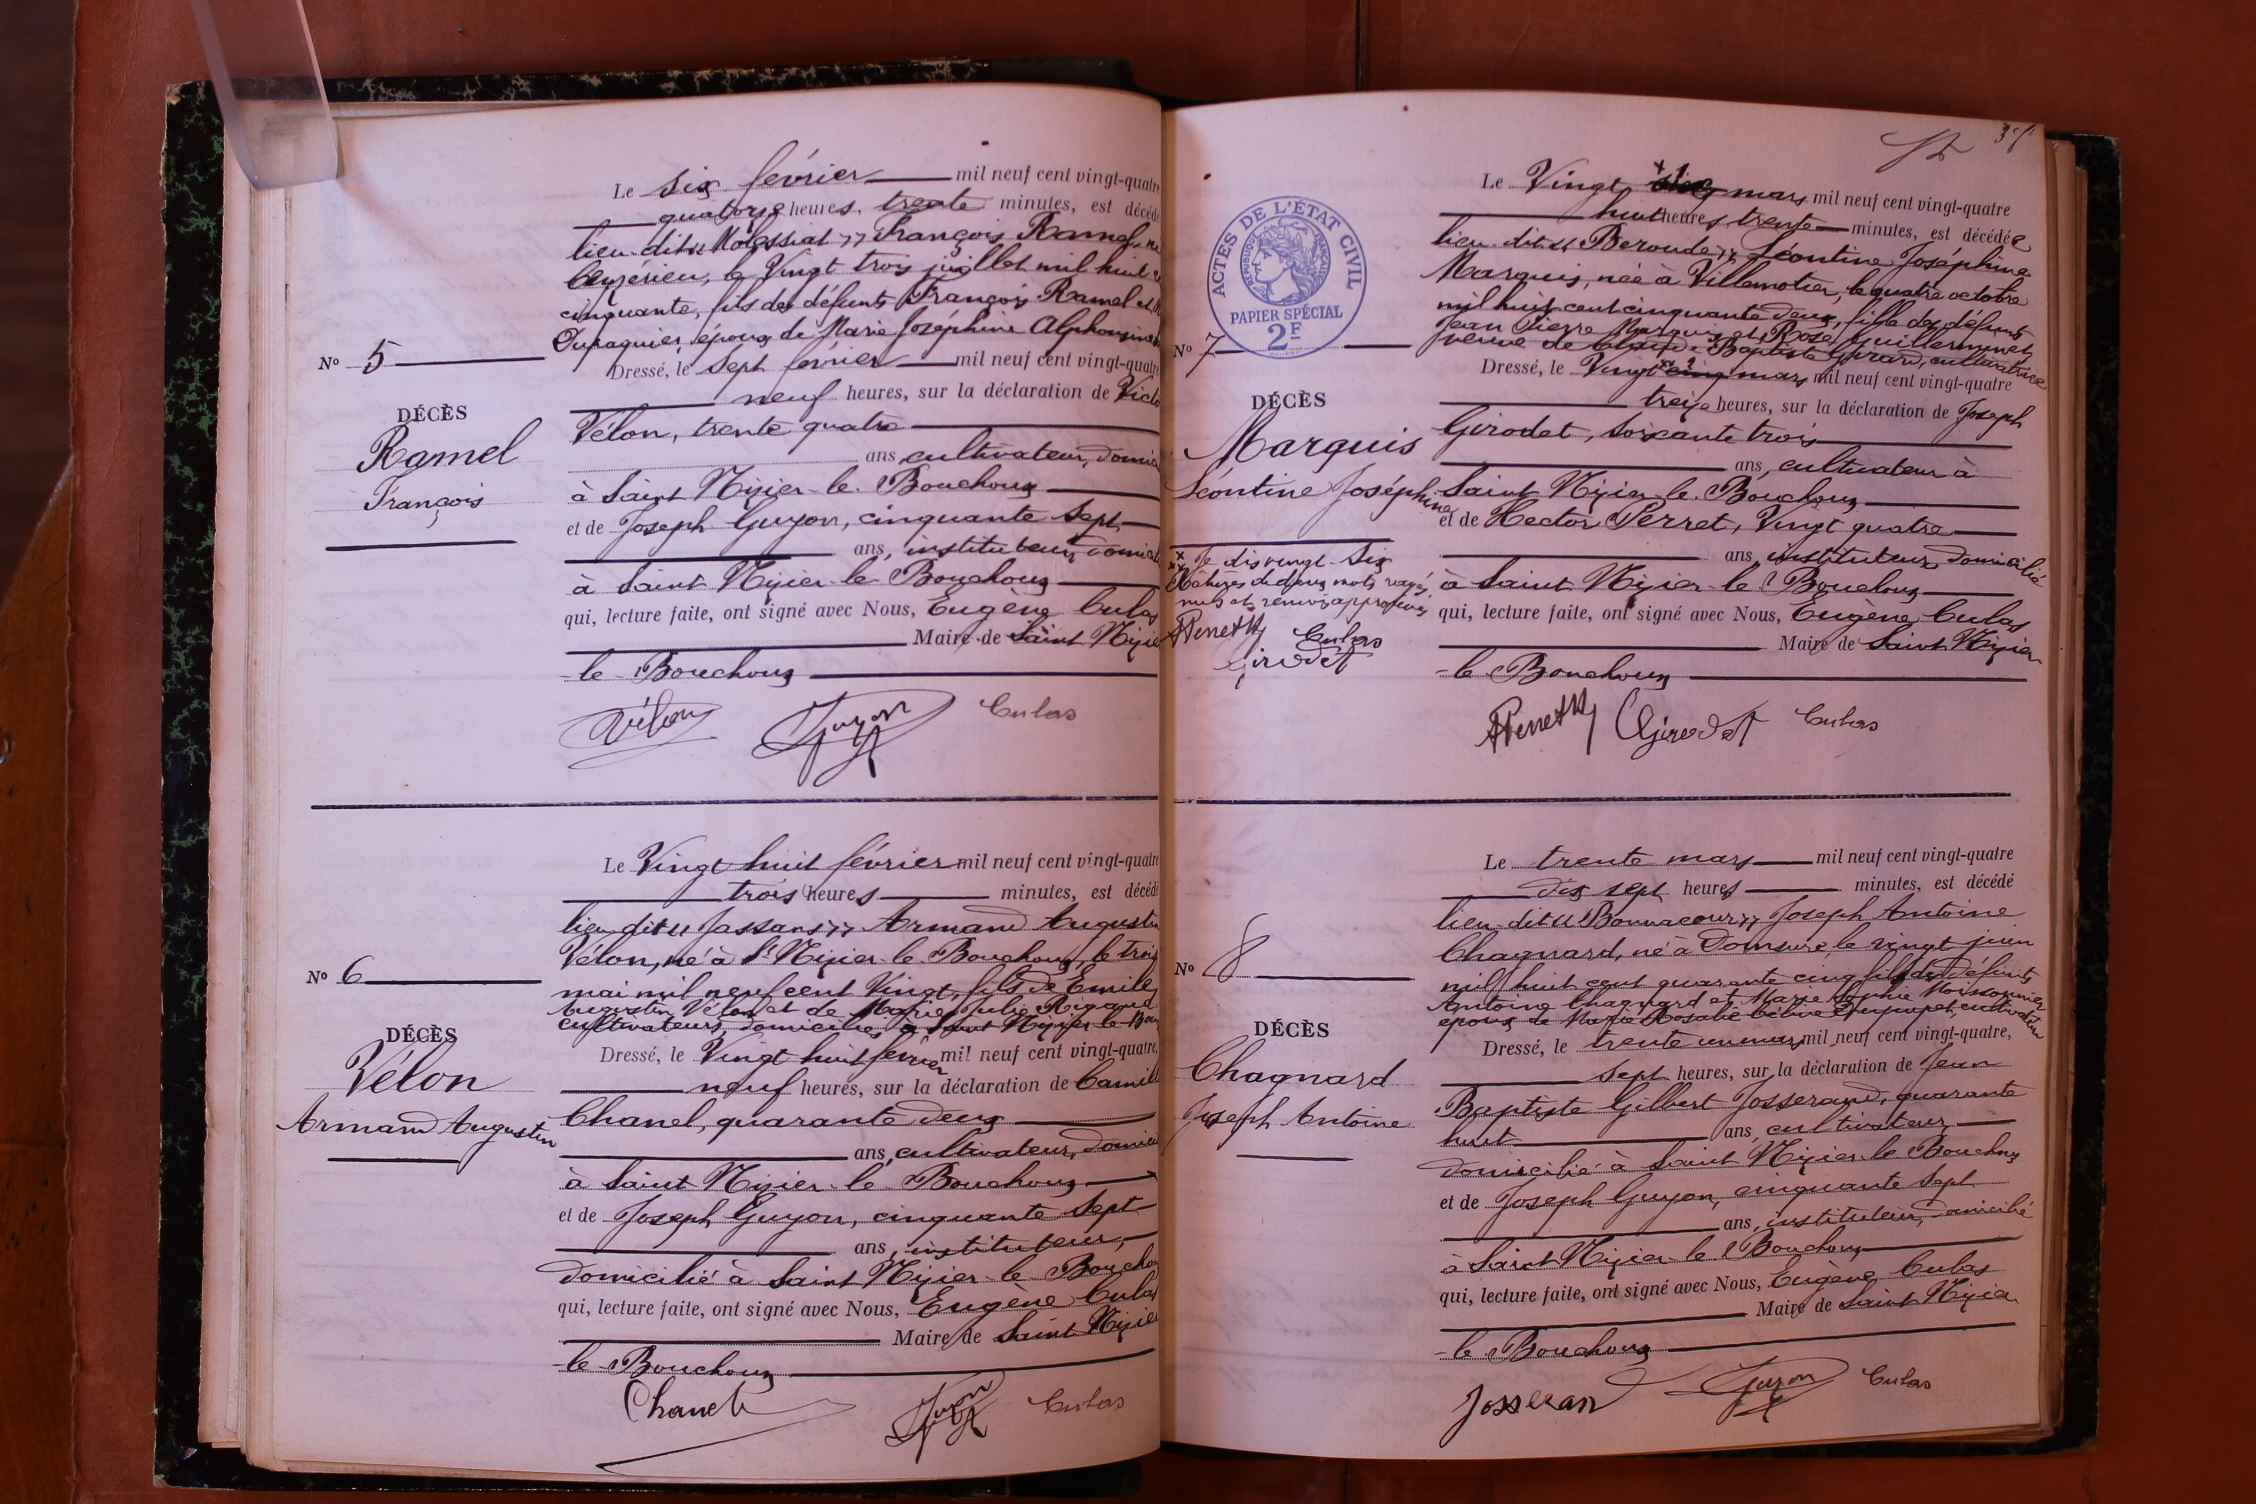 Le six février mil neuf cent vingt-quatre
quatorze heures, trente minutes, est décédé
lieu dit « Molessiat » François Ramel, né
Ceyzérieu, le Vingt trois juillet mil huit
cinquante, fils des défunts François Ramel et
époux de Marie Joséphine Alphonsine
Nº 5
Dressé, le Sept février mil neuf cent vingt-quatre
neuf heures, sur la déclaration de Victo
DÉCÈS
Ramel
François
Vélon, trente quatre
ans, cultivateur, domici
à Saint Nizier-le-Bouchoux
et de Joseph Guyon, cinquante sept
ans, instituteur, domicil
à Saint Nizier-le-Bouchoux
qui, lecture faite, ont signé avec Nous, Eugène Culas
Maire de Saint Nizier
-le-Bouchoux
Vélon Guyon Culas
Le Vingt huit février mil neuf cent vingt-quatre
trois heures minutes, est décédé
lieu dit « Jassans » Armand Augustin
Vélon, né à St Nizier-le-Bouchoux, le trois
mai mil neuf cent Vingt, fils de Emile
Augustin Vélon et de Marie Julie Rigaud
cultivateurs, domiciliés à Saint Nizier-le-Bou
Nº 6
DÉCÈS
Vélon
Armand Augustin
Dressé, le Vingt huit février mil neuf cent vingt-quatre,
neuf heures, sur la déclaration de Camille
Chanel, quarante deux
ans, cultivateur, domici
à Saint Nizier-le-Bouchoux
et de Joseph Guyon, cinquante sept
ans, instituteur,
domicilié à Saint Nizier-le-Bouchou
qui, lecture faite, ont signé avec Nous, Eugène Culas
Maire de Saint Nizier
-le-Bouchoux
Chanel Guyon Culas
ACTES DE L'ÉTAT CIVIL
RÉPUBLIQUE FRANÇAISE
PAPIER SPÉCIAL
2F
Le Vingt mars mil neuf cent vingt-quatre
huit heures trente minutes, est décédée
lieu dit « Beroude » Léontine Joséphine
Marquis, née à Villemotier, le quatre octobre
mil huit cent cinquante deux, fille des défunts
Jean Pierre Marquis et Rose Guillerminet
veuve de Claude Baptiste Girard, cultivatrice
Nº 7
DÉCÈS
Marquis
Léontine Joséphine
Dressé, le Vingt cinq mars mil neuf cent vingt-quatre
treize heures, sur la déclaration de Joseph
Girodet, soixante trois
ans, cultivateur à
Saint Nizier-le-Bouchoux
et de Hector Perret, Vingt quatre
ans, instituteur, domicilié
à Saint Nizier-le-Bouchoux
qui, lecture faite, ont signé avec Nous, Eugène Culas
Maire de Saint Nizier
-le-Bouchoux
Je dis vingt six
Ratures de deux mots rayés
nuls et renvoi approuvés
Perret Culas
Girodet
Perret Girodet Culas
Le trente mars mil neuf cent vingt-quatre
dix sept heures minutes, est décédé
lieu dit « Bonnacour » Joseph Antoine
Chagnard, né à Domsure, le vingt juin
mil huit cent quarante cinq, fils des défunts
Antoine Chagnard et Marie Sophie Moissonnier
époux de Marie Rosalie cultivateur
Nº 8
DÉCÈS
Chagnard
Joseph Antoine
Dressé, le trente un mars mil neuf cent vingt-quatre,
sept heures, sur la déclaration de Jean
Baptiste Gilbert Josserand, quarante
huit ans, cultivateur
domicilié à Saint Nizier-le-Bouchoux
et de Joseph Guyon, cinquante sept
ans, instituteur, domicilié
à Saint Nizier-le-Bouchoux
qui, lecture faite, ont signé avec Nous, Eugène Culas
Maire de Saint Nizier
-le-Bouchoux
Josseran Guyon Culas